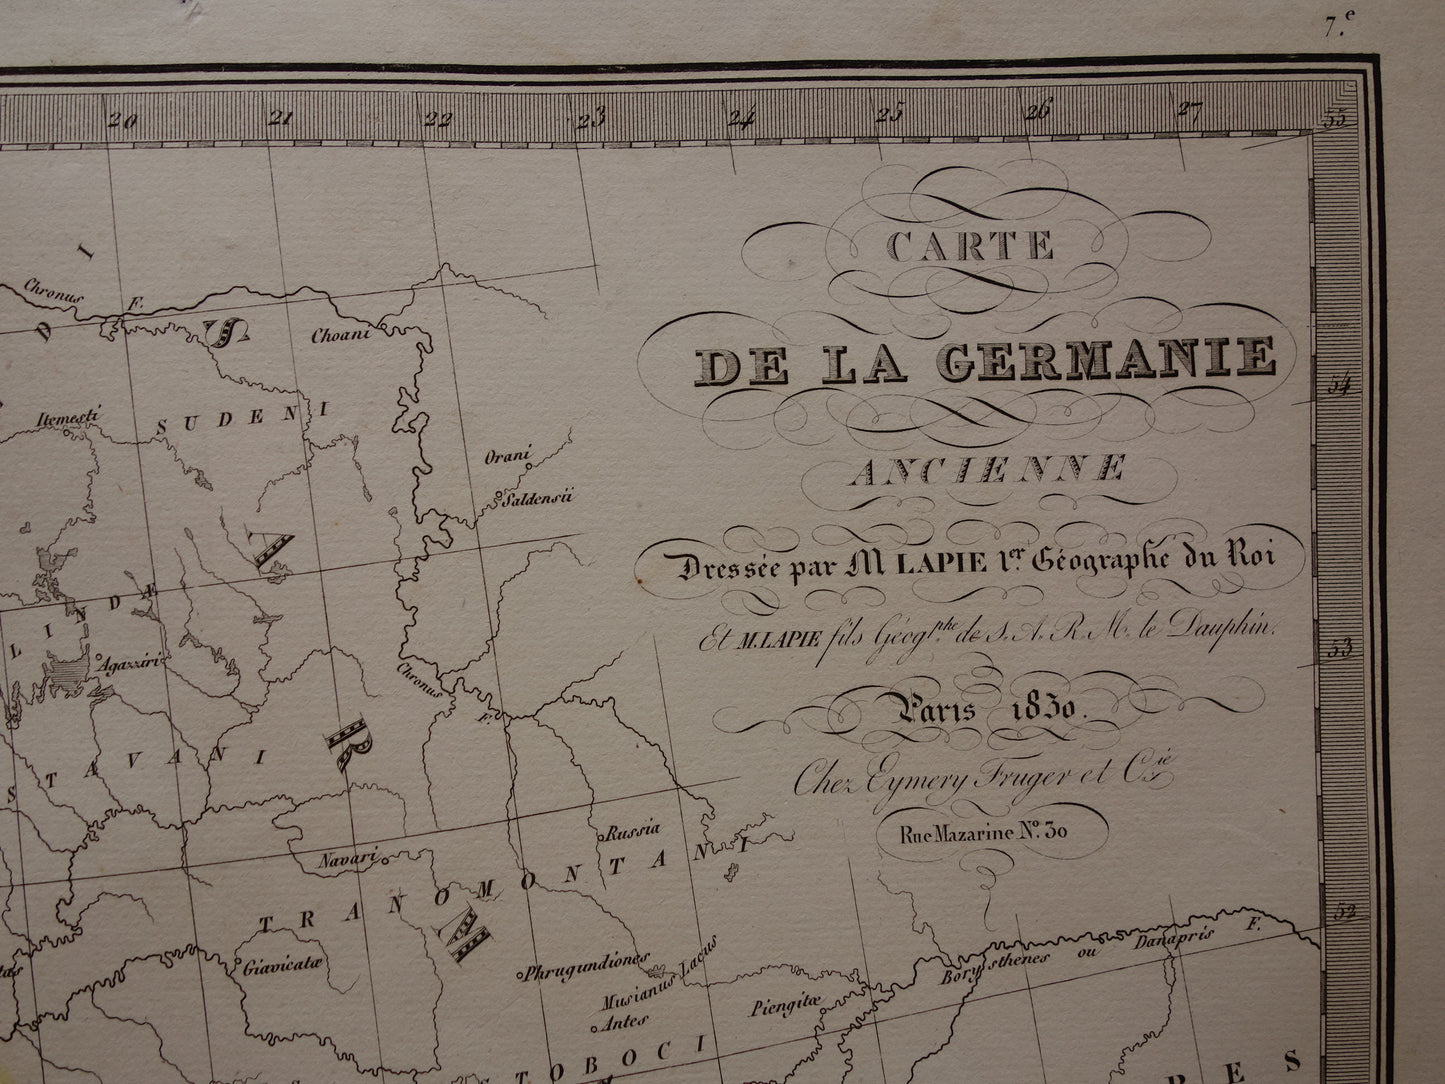 7.e
20 21 22 23 24 25 26 27 55
CARTE
DE LA GERMANIE
ANCIENNE
Dressée par M LAPIE 1er. Géographe du Roi
Et M. LAPIE fils Géogphe. de S. A. R. M. le Dauphin.
Paris 1830.
Chez Eymery Fruger et Cie
Rue Mazarine No. 30
54
53
52
D I
Chronus F.
S
Choani
Itemesti
SUDENI
Orani
Saldensii
A
LINDE
Agazziri
Chronus F.
R
STAVANI
Russia
Navari
TRANOMONTANI
Giavicatæ
Phrugundiones
Musianus Lacus
Antes
Piengitæ
Borysthenes ou Danapris F.
TOBOCI
RES